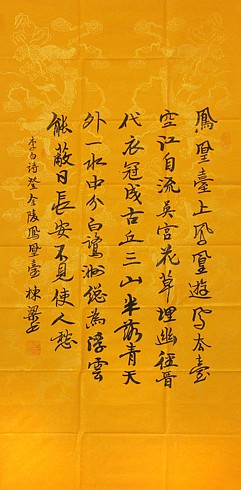 鳳凰臺上鳳凰遊鳳去臺
空江自流吳宮花草埋幽徑晉
代衣冠成古丘三山半落青天
外一水中分白鷺洲總為浮雲
能蔽日長安不見使人愁
李白詩登金陵鳳凰臺 棟梁